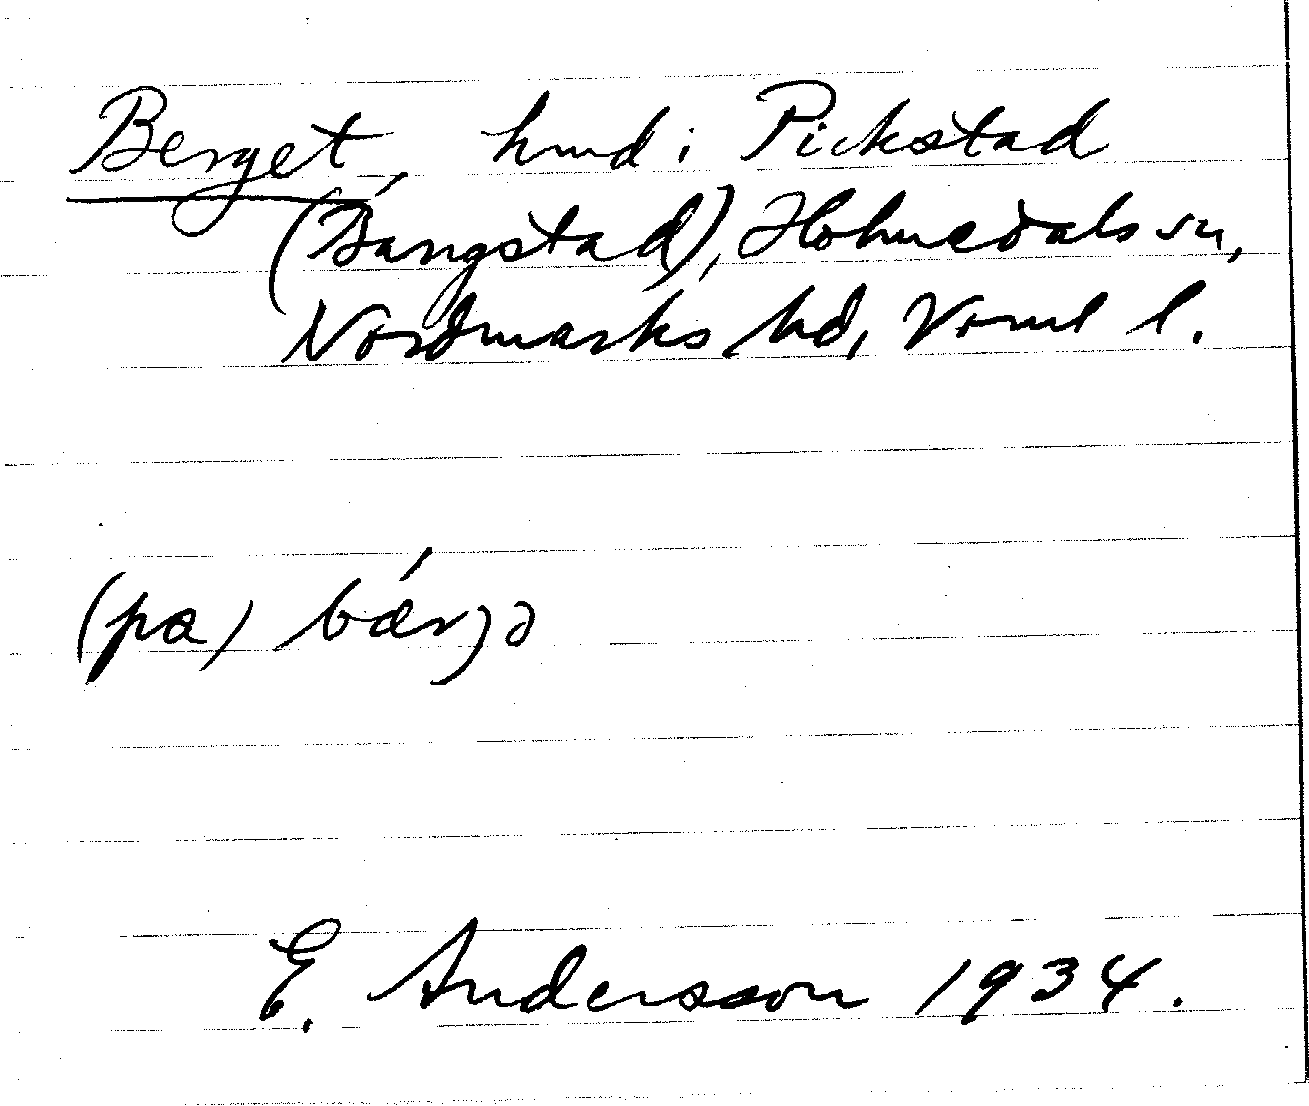 Berget, hmd i Pickstad
(Bångstad), Holmedals sn,
Nordmarks hd, Värml l.
(pa) bǽrjə
E. Andersson 1934.